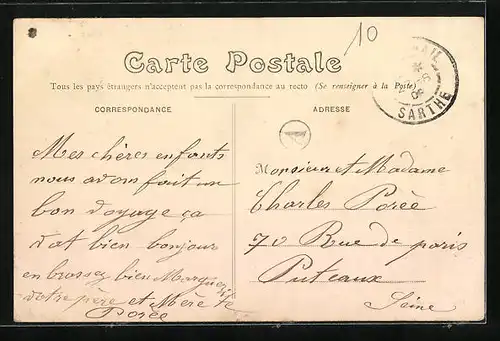 10
Carte Postale
Tous les pays étrangers n'acceptent pas la correspondance au recto (Se renseigner à la Poste)
CORRESPONDANCE
ADRESSE
SARTHE
A
Mes chères enfants
nous avons fait un
bon voyage ça
vat bien bonjour
en brossez bien Marguerite
votre père et Mère
Porée
Monsieur et Madame
Charles Porée
70 Rue de paris
Puteaux
Seine